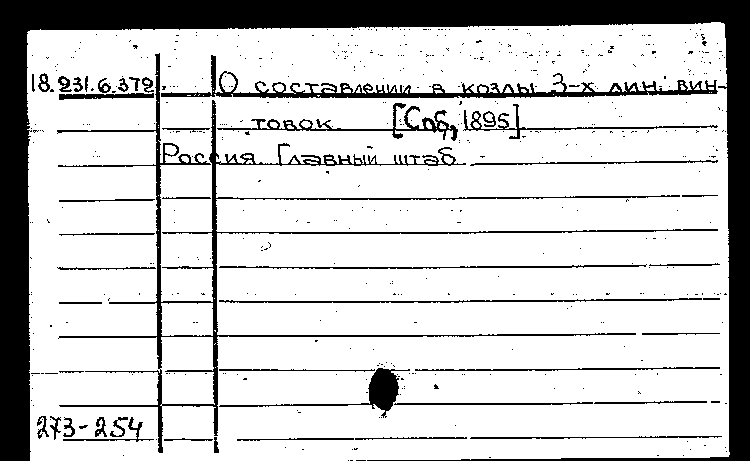 18.231.6.372. О составлении в козлы 3-х лин. вин-
товок. [Спб, 1895]
Россия. Главный штаб
273-254